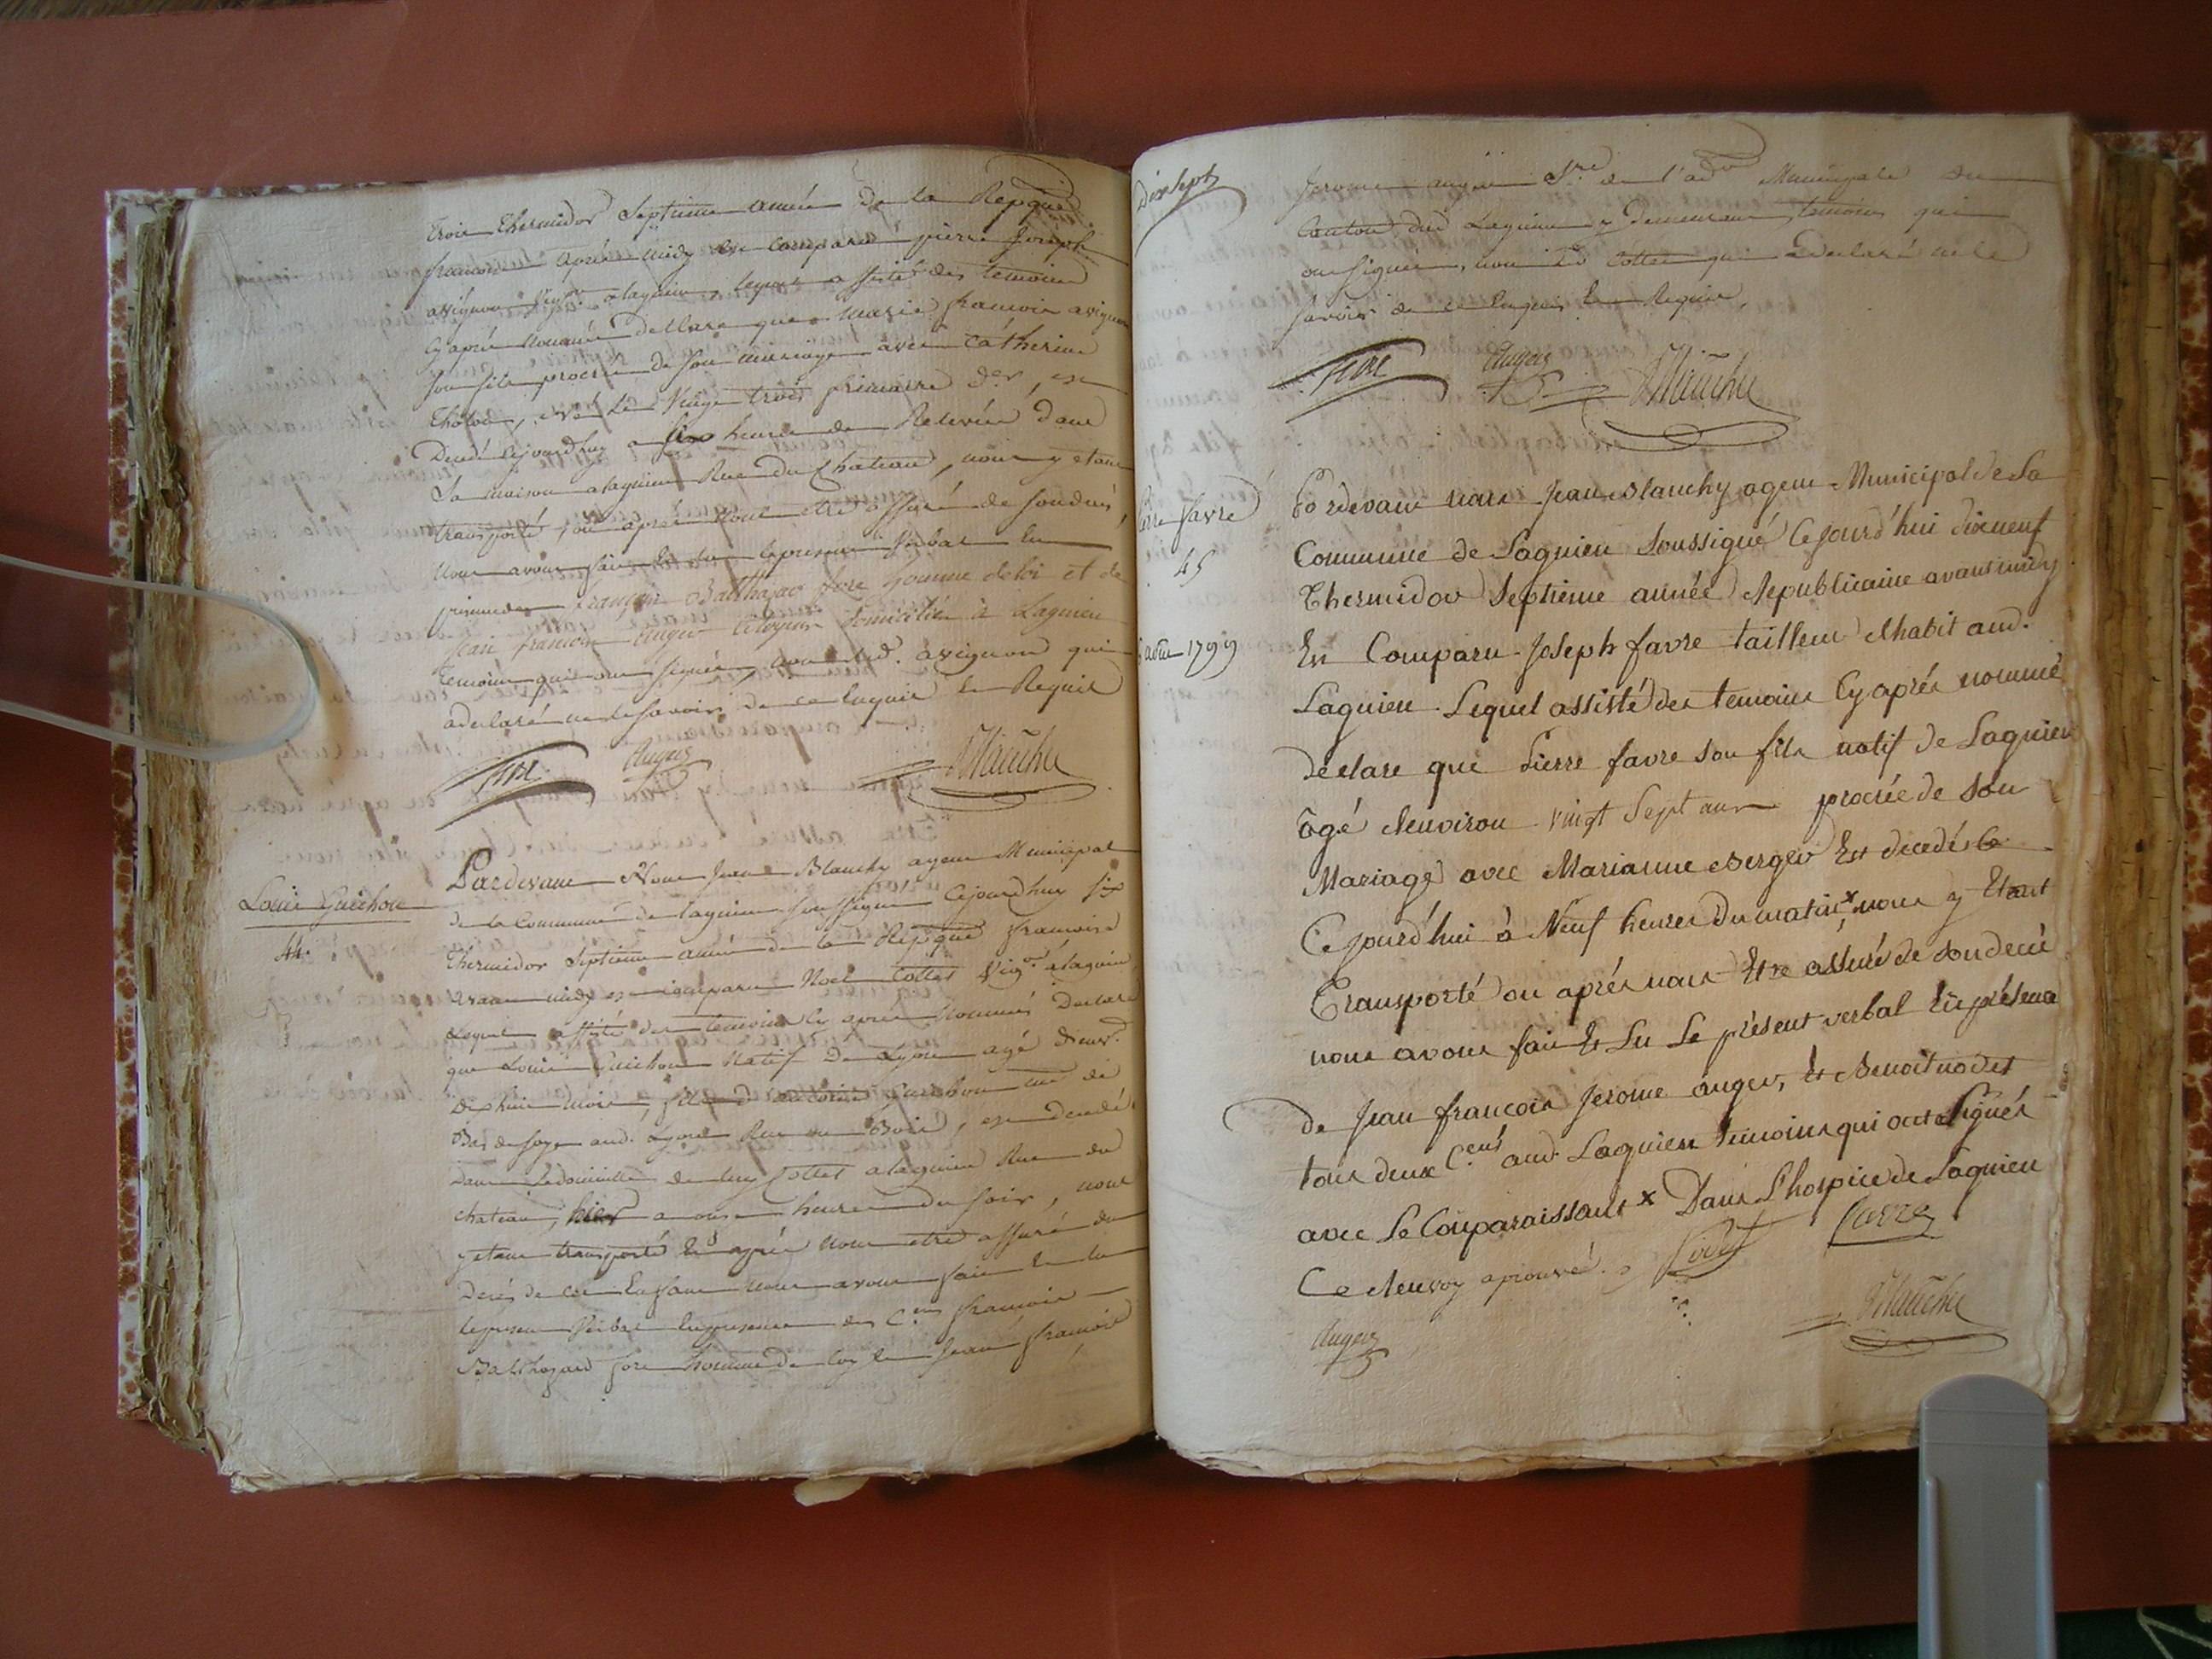 trois thermidor Septieme année De la Repque
francoise après midy est comparu pierre Joseph
assignon Vigon a lagnieu, lequel assisté des temoins
Cy après nommés declare que Marie francois avignon
son fils procréé de son mariage avec Catherine
Tholon, né le Vingt trois frimaire der, est
Decedé cejourdhuy a six heures de Relevée dans
Sa maison a lagnieu Rue du Chateau, nous y étant
transporté, ou après nous être assuré de son decès
nous avons fait et lu le present verbal En
presence de françois Balthazar fore homme de loi et de
jean francois auger Citoyens domiciliés à Lagnieu
temoins qui ont signés, non led. avignon qui
a declaré ne le savoir de ce Enquis et Requis
fore Auger JBlanchy
Louis Guichon
44.
Pardevant Nous Jean Blanchy agent Municipal
de la Commune de lagnieu soussigné Cejourdhuy six
thermidor Septieme année de la Repque francoise
avant midy est comparu Noel Cottet Vigon a lagnieu
Lequel assisté des temoins cy après nommés Declare
que Louis Guichon Natif De Lyon agé d'env.
Dix huit mois, fils d'antoine Guichon md de
Bas de soye aud. Lyon Rue du Bois, est decedé
Dans Le domicille de luy Cottet a lagnieu Rue du
chateau, hier a onze heures du soir, nous
y étant transporté Et après nous être assuré du
Decès de cet Enfant nous avons fait et lu
le present Verbal En presence des Cens francois
Balthazard fore homme de loy et Jean francois
Dix Sept
Jerome auger Sre de l'adon Municipale du
Canton dud Lagnieu y demeurant temoins qui
ont signés, non led Cottet qui a declaré ne le
savoir de ce Enquis Et Requis.
fore Auger JBlanchy
Pierre favre
45
6 aout 1799
Pardevant nous Jean Blanchy agent Municipal de La
Commune de Lagnieu Soussigné Cejourd'hui dixneuf
Thermidor Septieme année Republicaine avant midy
Est Comparu Joseph favre tailleur d'habit aud.
Lagnieu Lequel assisté des temoins Cy après nommé
declare que Pierre favre son fils natif de Lagnieu
âgé d'environ vingt Sept ans procréé de Son
Mariage avec Marianne Berger Est decedé Ce
Cejourd'hui à Neuf heures Du matin x nous y Etant
Transporté ou après nous Etre assuré de Son decés
nous avons fait Et Lu Le présent verbal En présence
de Jean francois Jerome auger, Et Benoit
tous deux Cens aud. Lagnieu temoins qui ont Signés
avec Le Comparaissant x Dans L'hospice de Lagnieu
Ce Renvoy aprouvé. favre
Auger JBlanchy